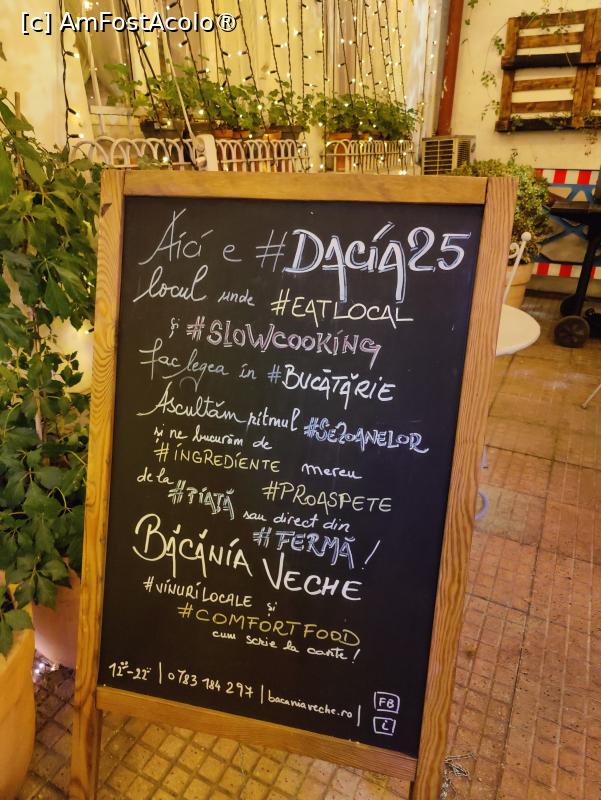 [c] AmFostAcolo®
Aici e #DACIA25
locul unde #EATLOCAL
și #SLOWCOOKING
fac legea în #BUCĂTĂRIE
Ascultăm ritmul #SEZOANELOR
și ne bucurăm de
#INGREDIENTE mereu
#PROASPETE
de la #PIAȚĂ sau direct din
#FERMĂ!
BĂCĂNIA VECHE
#VINURI LOCALE și
#COMFORTFOOD
cum scrie la carte!
12⁰⁰-22⁰⁰ | 0783 184 297 | bacaniaveche.ro |
FB
i